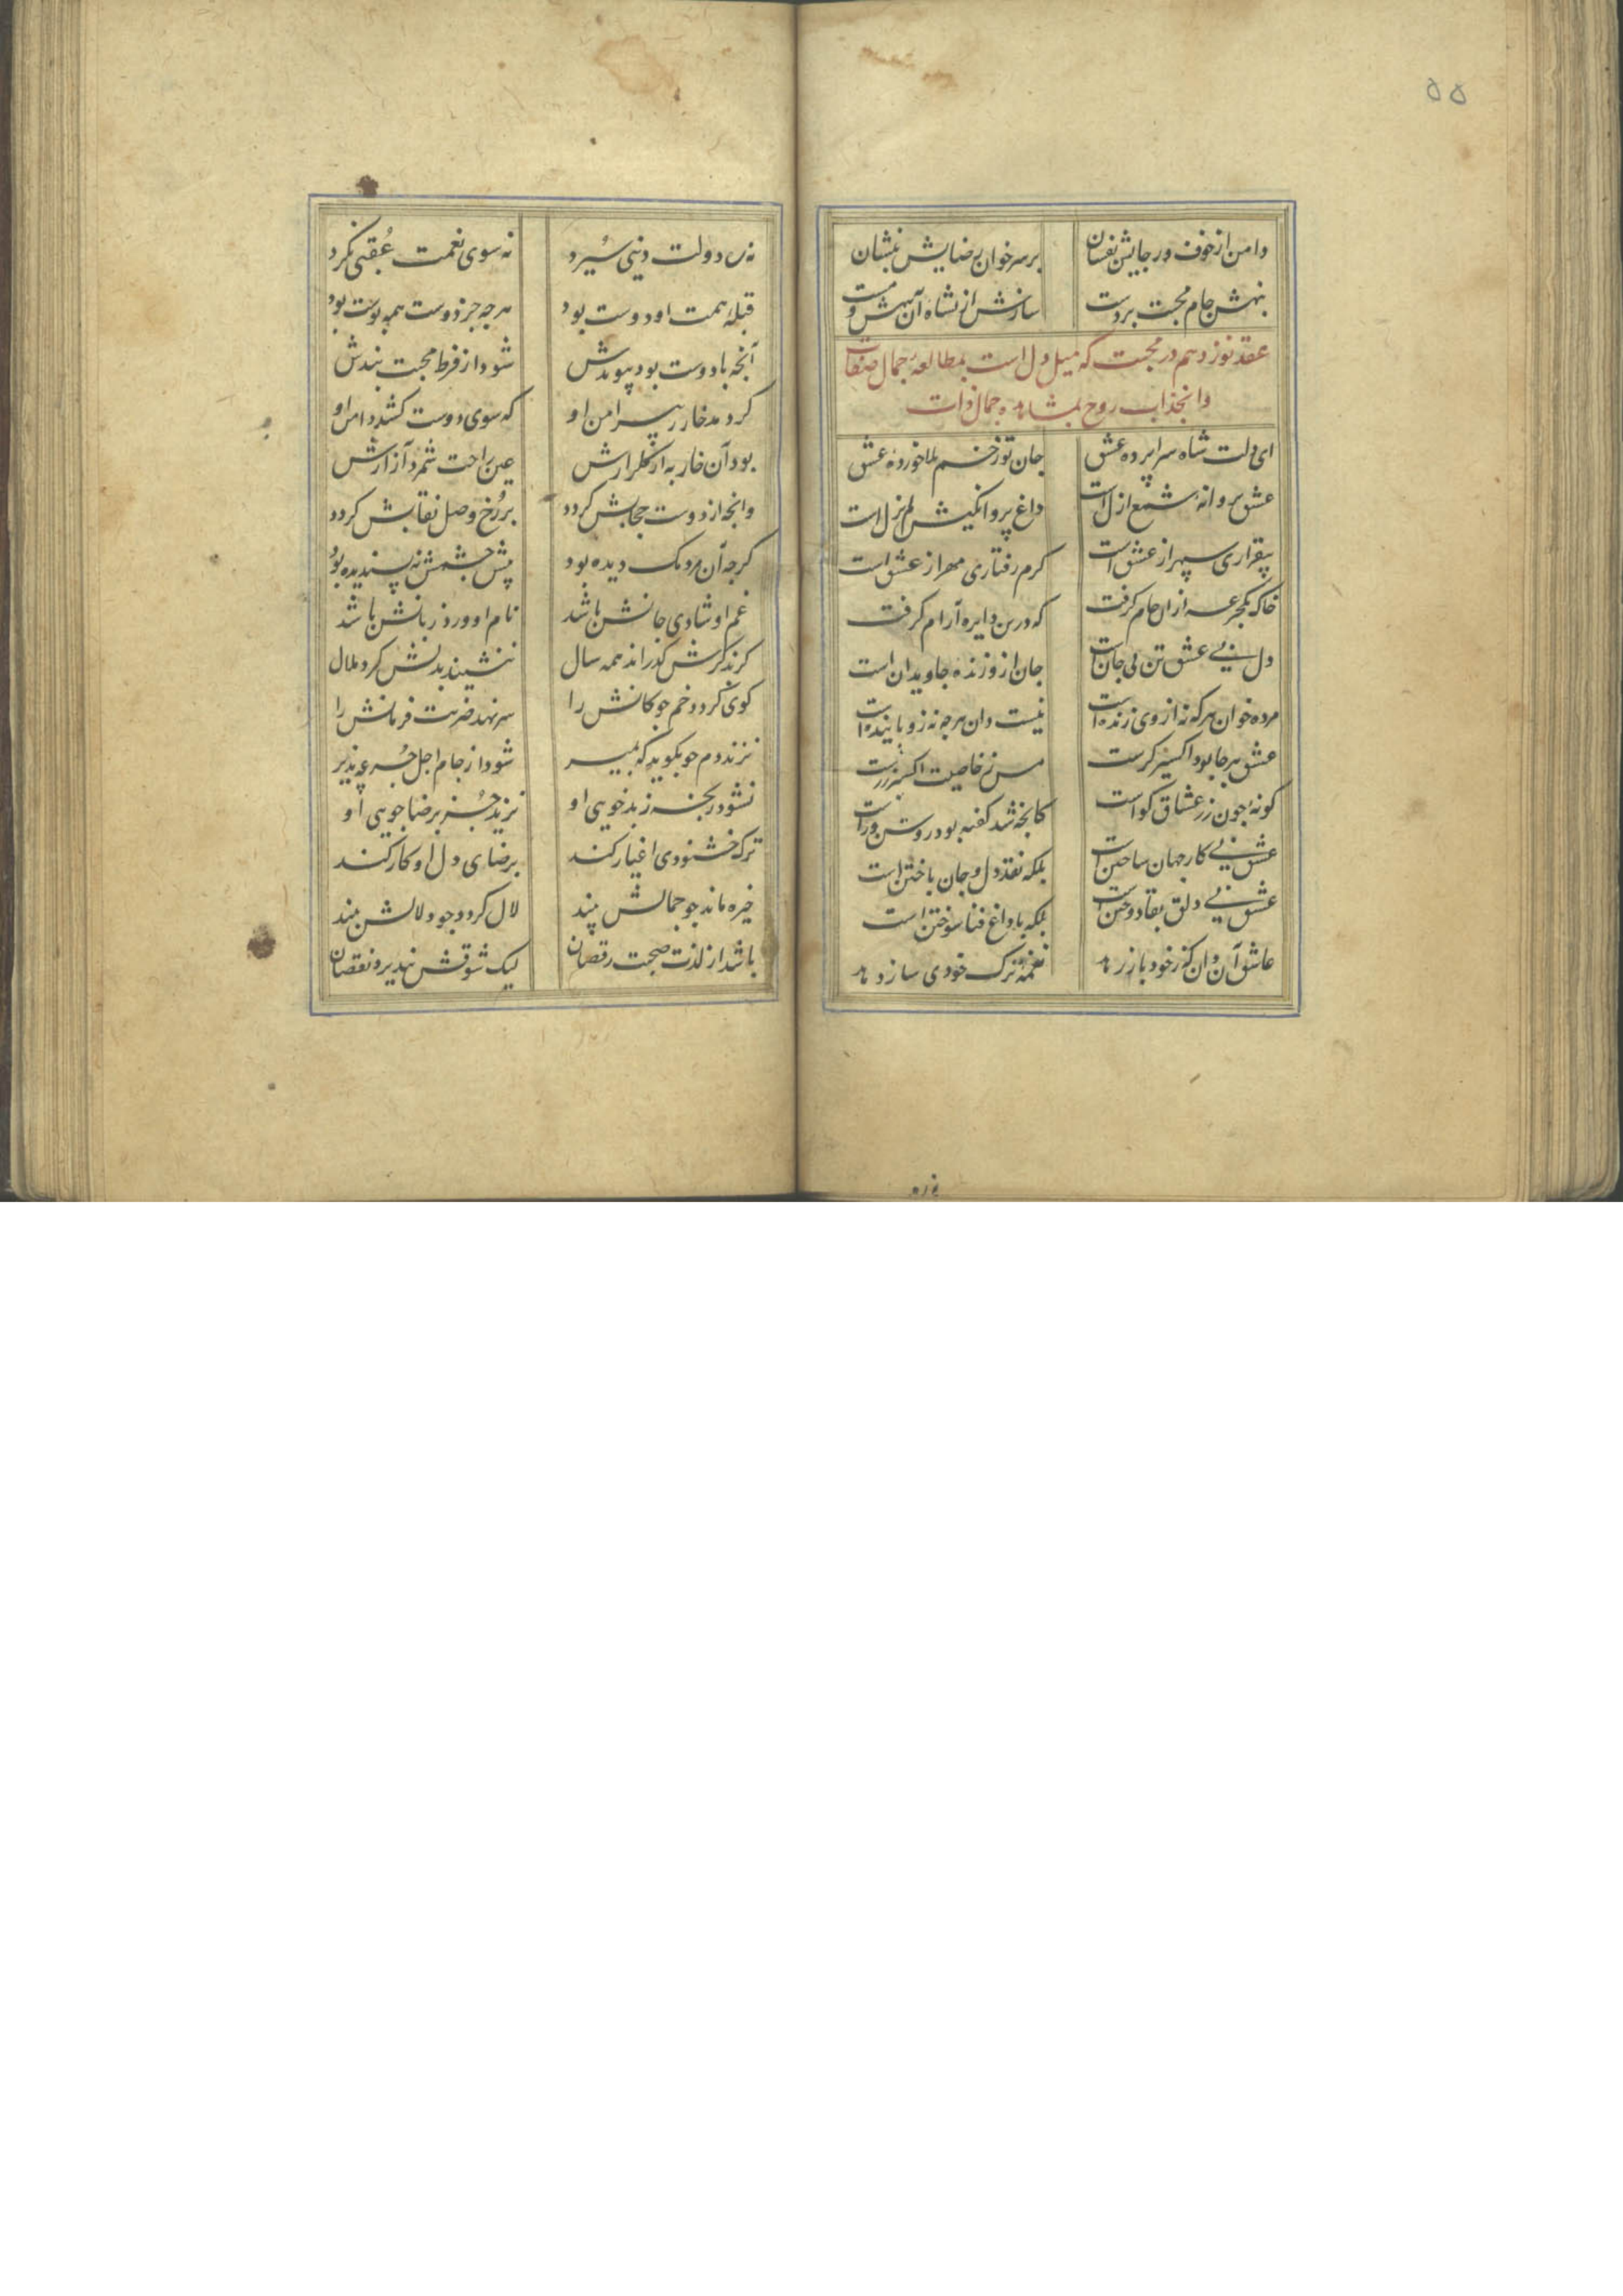 ۵۵
دامن از خوف و رجایش بفشان بر سر خوان رضایش بنشان
بنهش جام محبت بر دست سازش از نشاه آن بیهش و مست
عقد نوزدهم در محبت که میل دل است بمطالعهٔ جمال صفات
و انجذاب روح بمشاهده جمال ذات
ای دلت شاه سراپرده عشق جان تو زخم بلا خورده عشق
عشق پروانهٔ شمع ازل است داغ پروانگیش لم یزل است
بیقراری سپهر از عشق است کرم رفتاری مهر از عشق است
خاک یکجرعه از ان جام کرفت که درین دایره آرام کرفت
دل بی عشق تن بی جان است جان ازو زنده جاویدان است
مرده خوان هر که نه از وی زنده است نیست دان هرچه نه زو پاینده است
عشق هر جا بود اکسیر کرست مس ز خاصیت اکسیر زرست
کونهٔ چون زر عشاق کواست کانچه شد کفته بود روشن و راست
عشق نی کار جهان ساختن است بلکه نقد دل و جان باختن است
عشق نی دلق بقا دوختن است بلکه با داغ فنا سوختن است
عاشق آن دان که ز خود باز رهد نغمهٔ ترک خودی ساز دهد
نه ره دولت دنیی سپرد نه سوی نعمت عُقبی نکرد
قبلهٔ همت او دوست بود هرچه جز دوست همه پوست بود
آنچه با دوست بود پیوندش شود از فرط محبت بندش
کر دمد خار ز پیرامن او که سوی دوست کشد دامن او
بود آن خار به از کلزارش عین راحت شمرد آزارش
وانچه از دوست حجابش کردد بر رُخ وصل نقابش کردد
کرچه آن مردمک دیده بود پیش چشمش نه پسندیده بود
غم او شادی جانش باشد نام او ورد زبانش باشد
کر بذکرش کذراند همه سال ننشیند بدلش کرد ملال
کوی کردد خم چوکانش را سر نهد ضربت فرمانش را
نزند دم چو بکوید که بمیر شود از جام اجل جُرعه پذیر
نشود رنجه ز بدخویی او نزید جُز برضاجویی او
ترک خشنودی اغیار کند برضای دل او کار کند
خیره ماند چو جمالش بیند لال کردد چو دلالش بیند
باشد از لذت صحبت رقصان لیک شوقش نپذیرد نقصان